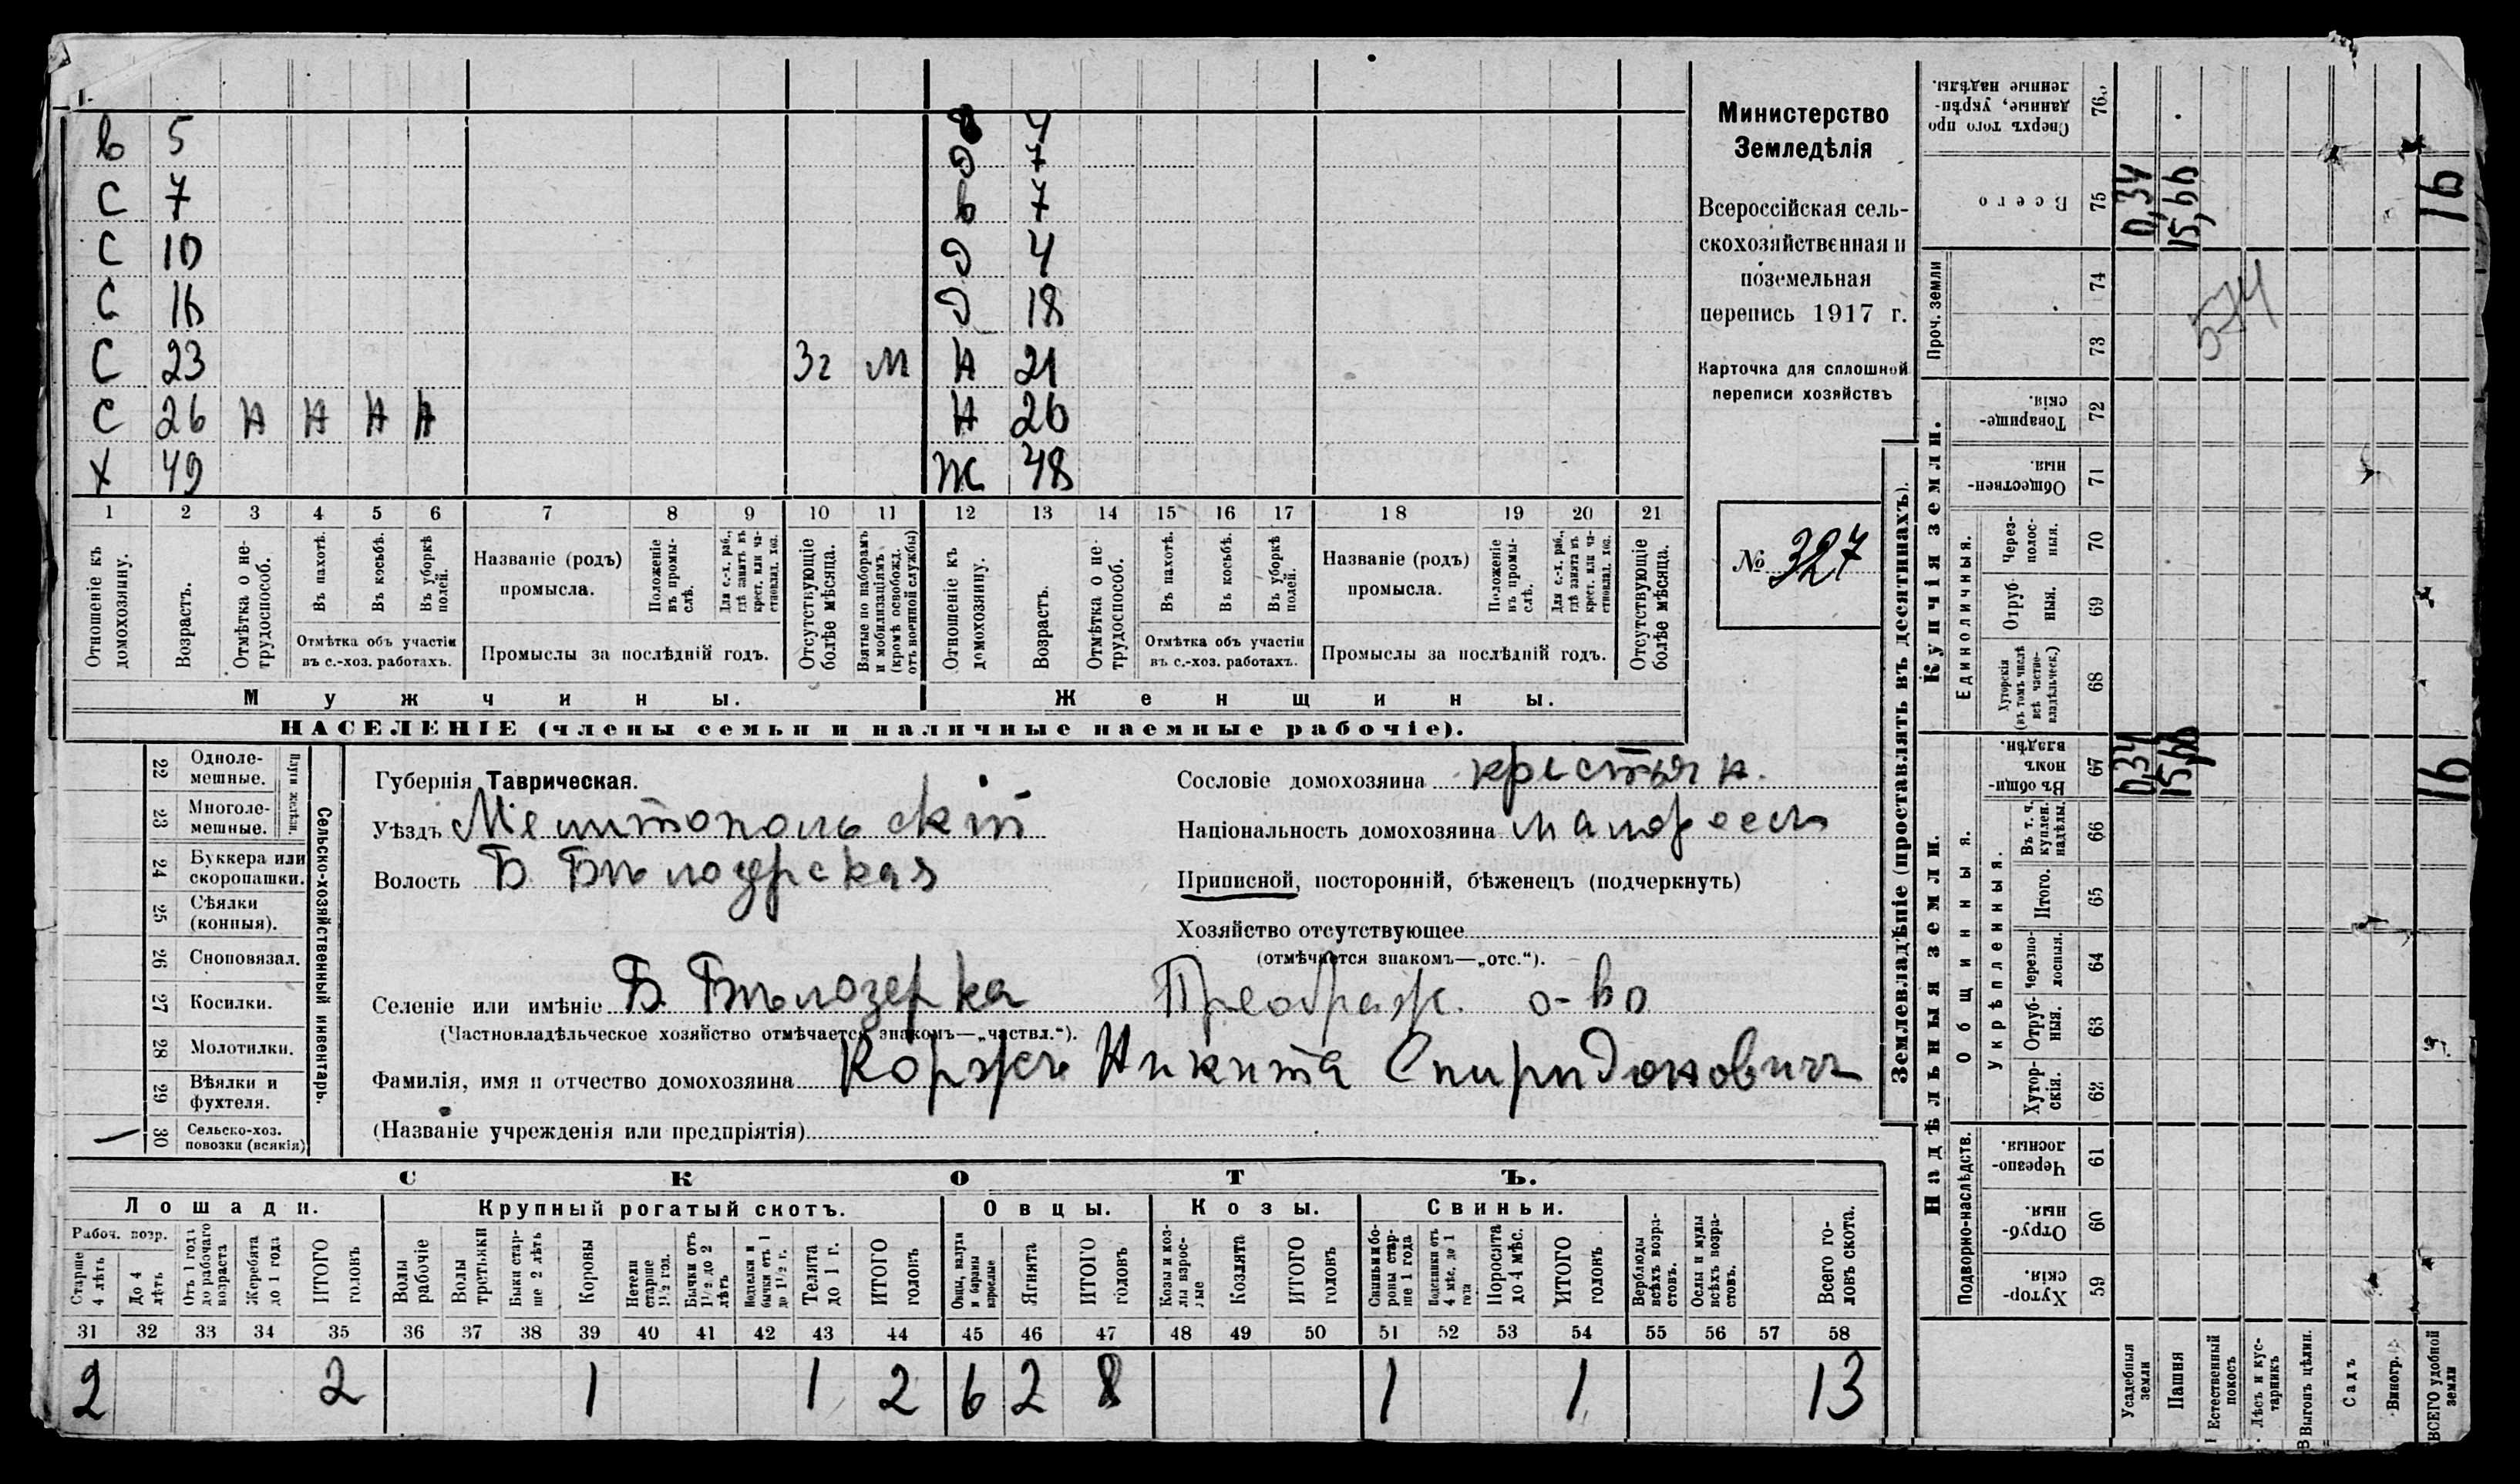 в 5 8 4
Д 7
С 7 в 7
С 10 Д 4
С 16 Д 18
С 23 3г М Н 21
С 26 Н Н Н Н Н 26
Х 49 Ж 48
1 2 3 4 5 6 7 8 9 10 11 12 13 14 15 16 17 18 19 20 21
Отношеніе къ домохозяину.
Возрастъ.
Отмѣтка о нетрудоспособ.
Въ пахотѣ.
Въ косьбѣ.
Въ уборкѣ полей.
Отмѣтка объ участіи
въ с.-хоз. работахъ.
Названіе (родъ)
промысла.
Положеніе въ промыслѣ.
Для с.-х. раб., гдѣ занятъ въ крест. или частновлад. хоз.
Промыслы за послѣдній годъ.
Отсутствующіе болѣе мѣсяца.
Взятые по наборамъ и мобилизаціямъ (кромѣ освобожд. отъ военной службы)
Отношеніе къ домохозяину.
Возрастъ.
Отмѣтка о нетрудоспособ.
Въ пахотѣ.
Въ косьбѣ.
Въ уборкѣ полей.
Отмѣтка объ участіи
въ с.-хоз. работахъ.
Названіе (родъ)
промысла.
Положеніе въ промыслѣ.
Для с.-х. раб., гдѣ занята въ крест. или частновлад. хоз.
Промыслы за послѣдній годъ.
Отсутствующіе болѣе мѣсяца.
Мужчины. Женщины.
НАСЕЛЕНІЕ (члены семьи и наличные наемные рабочіе).
Министерство
Земледѣлія
Всероссійская сель-
скохозяйственная и
поземельная
перепись 1917 г.
Карточка для сплошной
переписи хозяйствъ
№ 327
Сельско-хозяйственный инвентарь.
22 Одноле-
мешные.
23 Многоле-
мешные.
24 Буккера или
скоропашки.
25 Сѣялки
(конныя).
26 Сноповязал.
27 Косилки.
28 Молотилки.
29 Вѣялки и
фухтеля.
30 Сельско-хоз.
повозки (всякія)
Губернія Таврическая.
Уѣздъ Мелитопольскій
Волость Б Бѣлозерская
Сословіе домохозяина крестьян.
Національность домохозяина малоросс
Приписной, посторонній, бѣженецъ (подчеркнуть)
Хозяйство отсутствующее
(отмѣчается знакомъ—„отс.“).
Селеніе или имѣніе Б. Бѣлозерка Преображ. о-во
(Частновладѣльческое хозяйство отмѣчается знакомъ—„частвл.“).
Фамилія, имя и отчество домохозяина Коржъ Никита Спиридоновичъ
(Названіе учрежденія или предпріятія)
СКОТЪ.
Лошади. Крупный рогатый скотъ. Овцы. Козы. Свиньи.
Рабоч. возр.
Старше 4 лѣтъ
До 4 лѣтъ
Отъ 1 года до рабочаго возраста
Жеребята до 1 года
ИТОГО головъ
Волы рабочіе
Волы третьяки
Быки старше 2 лѣтъ
Коровы
Нетели старше 1½ год.
Бычки отъ 1½ до 2 лѣтъ
Телята до 1 г.
ИТОГО головъ
Овцы, валухи и бараны взрослые
Ягнята
ИТОГО головъ
Козы и козлы взрослые
Козлята
ИТОГО головъ
Свиньи и боровы старше 1 года
Подсвинки отъ 4 мѣс. до 1 года
Поросята до 4 мѣс.
ИТОГО головъ
Верблюды всѣхъ возрастовъ.
Ослы и мулы всѣхъ возрастовъ.
Всего головъ скота.
31 32 33 34 35 36 37 38 39 40 41 42 43 44 45 46 47 48 49 50 51 52 53 54 55 56 57 58
2 2 1 1 2 6 2 8 1 1 13
Землевладѣніе (проставлять въ десятинахъ).
Надѣльныя земли. Купчія земли. Проч. земли
Подворно-наслѣдств.
Общинныя.
Укрѣпленныя.
Единоличныя.
59 Хуторскія.
60 Отрубныя.
61 Черезполосныя.
62 Хуторскія.
63 Отрубныя.
64 Черезполосныя.
65 Итого.
66 Въ т. ч. куплен. надѣлы.
67 Въ общинномъ владѣн.
68 Хуторскія (въ томъ числѣ всѣ частновладѣльческ.)
69 Отрубныя.
70 Черезполосныя.
71 Общественныя.
72 Товарищескія.
73
74
75 Всего
76 Сверхъ того проданные, укрѣпленные надѣлы.
Усадебныя земли 0,34 0,34
Пашня 15,66 15,66
Естественный покосъ
Лѣсъ и кустарникъ
Выгонъ цѣлин.
Садъ
Виногр.
ВСЕГО удобной земли 16 16
574